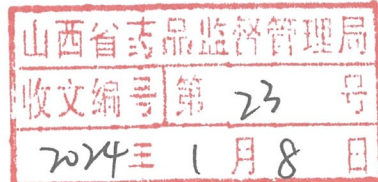 山西省药品监督管理局
收文编号 第 23 号
2024年 1 月 8 日